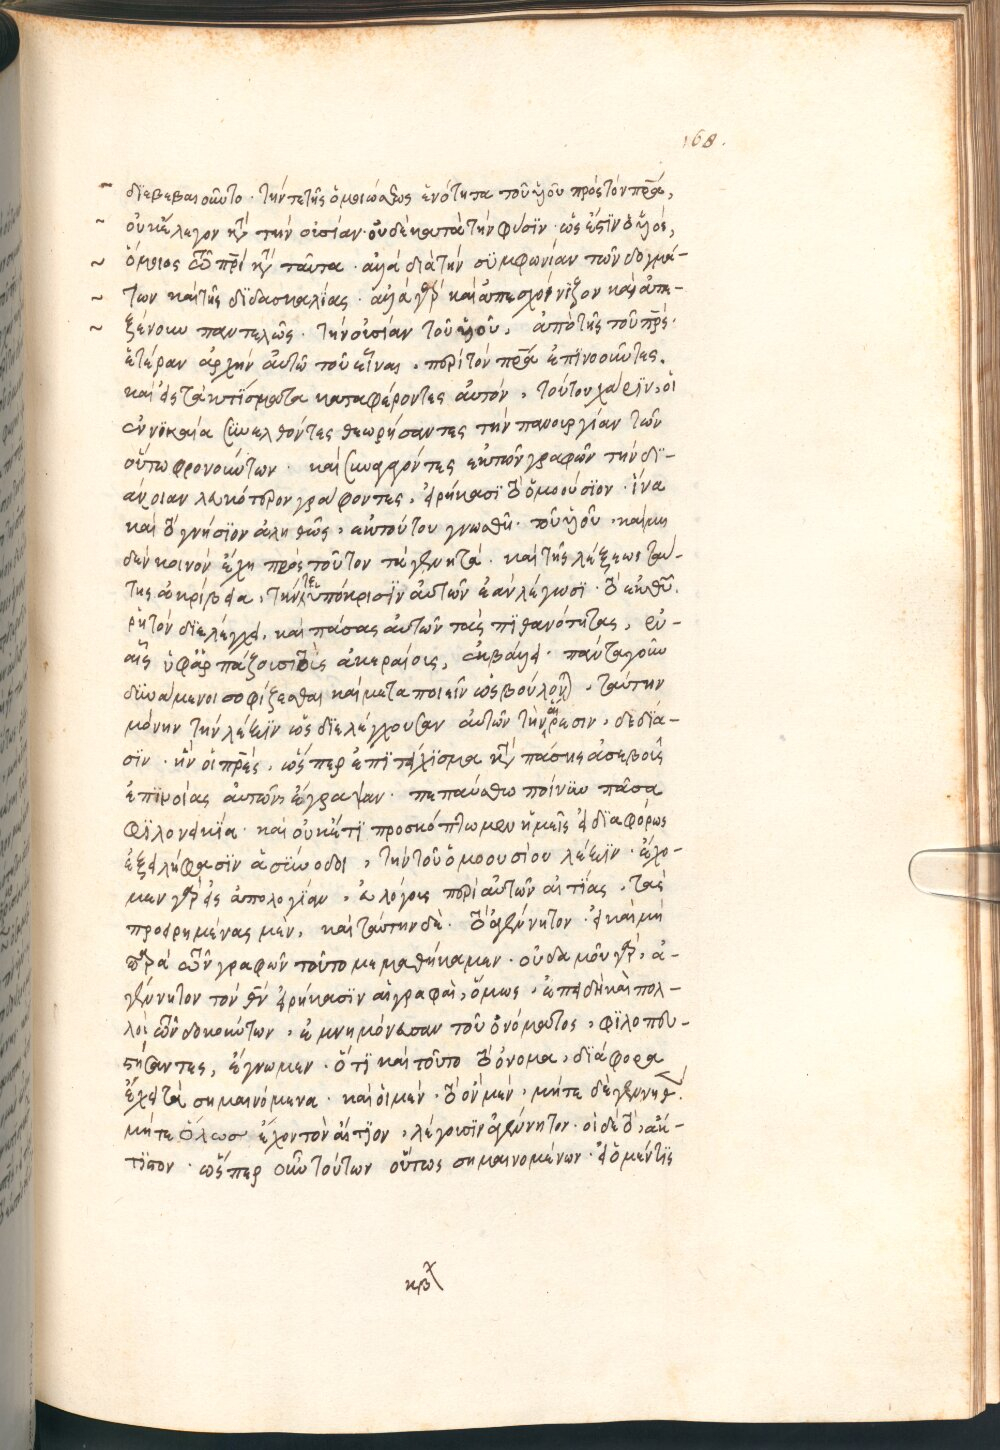 168.
διεβεβαιοῦντο· τήν τε τῆς ὁμοιώσεως ἑνότητα τοῦ υἱοῦ πρὸς τὸν πρα,
οὐκ ἔλεγον κτ τὴν οὐσίαν· οὐδὲ κατὰ τὴν φύσιν· ὡς ἐστὶν ὁ υἱὸς,
ὅμοιος τῷ πρὶ κτ ταῦτα· ἀλλὰ διὰ τὴν συμφωνίαν τῶν δογμά-
των καὶ τῆς διδασκαλίας· ἀλλὰ γρ καὶ ἀπεσχοίνιζον καὶ ἀπε-
ξένουν παντελῶς· τὴν οὐσίαν τοῦ υἱοῦ, ἀπὸ τῆς τοῦ πρς·
ἑτέραν ἀρχὴν αὐτῷ τοῦ εἶναι, παρὰ τὸν πρα ἐπινοοῦντες,
καὶ εἰς τὰ κτίσματα καταφέροντες αὐτόν, τούτου χάριν, οἱ
ἐν νικαίᾳ συνελθόντες θεωρήσαντες τὴν πανουργίαν τῶν
οὕτω φρονούντων· καὶ συναγαγόντες ἐκ τῶν γραφῶν τὴν δι-
άνοιαν λευκότερον γράφοντες, εἰρήκασι τὸ ὁμοούσιον· ἵνα
καὶ τὸ γνήσιον ἀληθῶς, ἐκ τούτου γνωσθῇ· τοῦ υἱοῦ, καὶ μη
δὲν κοινὸν ἔχῃ πρὸς τοῦτον τὰ γενητά· καὶ τῆς λέξεως ταύ-
της ἀκρίβεια, τήν τε ὑπόκρισιν αὐτῶν ἐὰν λέγωσι· τὸ ἐκ θυ.
ῥητὸν διελέγχει, καὶ πάσας αὐτῶν τὰς πιθανότητας, ἐν
αἷς ὑφαρπάζουσι τοὺς ἀκεραίους, ἐκβάλλει· πάντα γοῦν
δυνάμενοι σοφίζεσθαι καὶ μεταποιεῖν ὡς βούλονται, ταύτην
μόνην τὴν λέξιν ὡς διελέγχουσαν αὐτῶν τὴν αἵρεσιν, δεδία-
σιν· ἣν οἱ πρες, ὥσπερ ἐπιτείχισμα κτ πάσης ἀσεβοῦς
ἐπινοίας αὐτῶν ἔγραψαν· πεπαύσθω τοίνυν πᾶσα
φιλονεικία· καὶ οὐκέτι προσκόπτωμεν ἡμεῖς εἰ διαφόρως
ἐξειλήφασιν αἱ σύνοδοι, τὴν τοῦ ὁμοουσίου λέξιν· ἔχο-
μεν γρ εἰς ἀπολογίαν, εὐλόγους περὶ αὐτῶν αἰτίας, τὰς
προειρημένας μὲν, καὶ ταύτην δὲ· τὸ ἀγένητον· εἰ καὶ μὴ
παρὰ τῶν γραφῶν τοῦτο μεμαθήκαμεν· οὐδαμοῦ γρ, ἀ-
γένητον τὸν θν εἰρήκασιν αἱ γραφαὶ, ὅμως, ἐπειδὴ καὶ πολ-
λοὶ τῶν δοκούντων, ἐμνημόνευσαν τοῦ ὀνόματος, φιλοπευ-
στήσαντες, ἔγνωμεν· ὅτι καὶ τοῦτο τὸ ὄνομα, διάφορα
ἔχει τὰ σημαινόμενα· καὶ οἱ μὲν, τὸ ὂν μὲν, μήτε δὲ γεννηθ.
μήτε ὅλως ἔχον τὸν αἴτιον, λέγουσιν ἀγένητον· οἱ δὲ τὸ, ἄκ-
τιστον· ὥσπερ οὖν τούτων οὕτως σημαινομένων· εἰ ὁ μέν τις
κβ